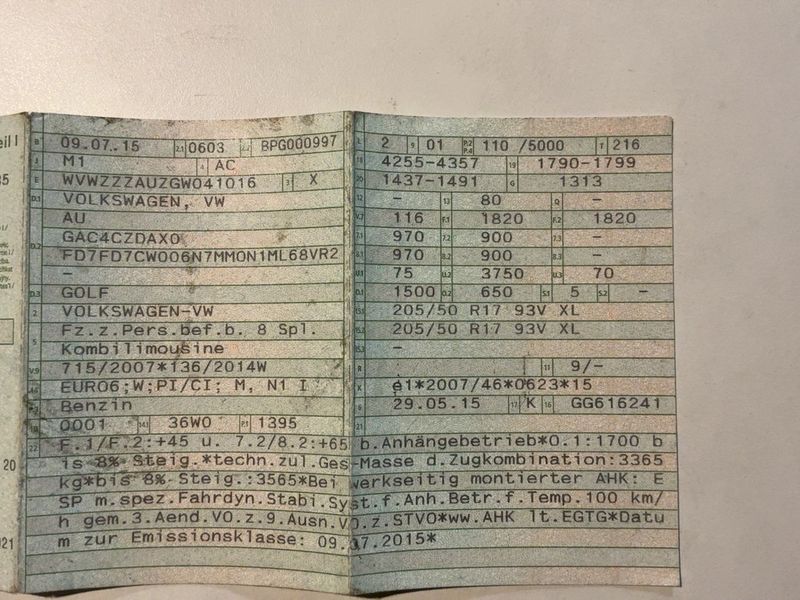 eil I
B 09.07.15 2.1 0603 2.2 BPG000997
J M1 4 AC
E WVWZZZAUZGW041016 3 X
D.1 VOLKSWAGEN, VW
AU
D.2 GAC4CZDAX0
FD7FD7CW006N7MMON1ML68VR2
–
D.3 GOLF
2 VOLKSWAGEN-VW
5 Fz.z.Pers.bef.b. 8 Spl.
Kombilimousine
V.9 715/2007*136/2014W
14 EURO6;W;PI/CI; M, N1 I
P.3 Benzin
10 0001 14.1 36W0 P.1 1395
L 2 9 01 P.2 P.4 110 /5000 T 216
18 4255-4357 19 1790-1799
20 1437-1491 G 1313
12 – 13 80 Q –
V.7 116 F.1 1820 F.2 1820
7.1 970 7.2 900 7.3 –
8.1 970 8.2 900 8.3 –
U.1 75 U.2 3750 U.3 70
O.1 1500 O.2 650 S.1 5 S.2 –
15.1 205/50 R17 93V XL
15.2 205/50 R17 93V XL
15.3 –
R 11 9/–
K e1*2007/46*0623*15
6 29.05.15 17 K 16 GG616241
21
22 F.1/F.2:+45 u. 7.2/8.2:+65 b.Anhängebetrieb*O.1:1700 b
is 8% Steig.*techn.zul.Ges-Masse d.Zugkombination:3365
kg*bis 8% Steig.:3565*Bei werkseitig montierter AHK: E
SP m.spez.Fahrdyn.Stabi.Syst.f.Anh.Betr.f.Temp.100 km/
h gem.3.Aend.VO.z.9.Ausn.VO.z.STVO*ww.AHK lt.EGTG*Datu
m zur Emissionsklasse: 09.07.2015*
20
021